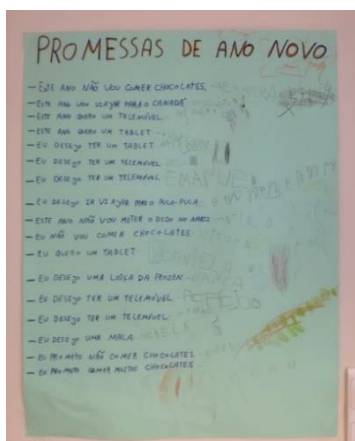 PROMESSAS DE ANO NOVO
- ESTE ANO NÃO VOU COMER CHOCOLATES.
- ESTE ANO VOU VIAJAR PARA O CANADÁ
- ESTE ANO QUERO UM TELEMÓVEL.
- ESTE ANO QUERO UM TABLET
- EU DESEJO TER UM TABLET
- EU DESEJO TER UM TELEMÓVEL
- EU DESEJO TER UM TELEMÓVEL EMANUEL
- EU DESEJO IR VIAJAR PARA O PULA-PULA
- ESTE ANO NÃO VOU METER O DEDO NO NARIZ
- EU NÃO VOU COMER CHOCOLATES
- EU QUERO UM TABLET
- EU DESEJO UMA LOIÇA DA FROZEN
- EU DESEJO TER UM TELEMÓVEL
- EU DESEJO TER UM TELEMÓVEL
- EU DESEJO UMA MALA
- EU PROMETO NÃO COMER CHOCOLATES
- EU PROMETO COMER MUITOS CHOCOLATES